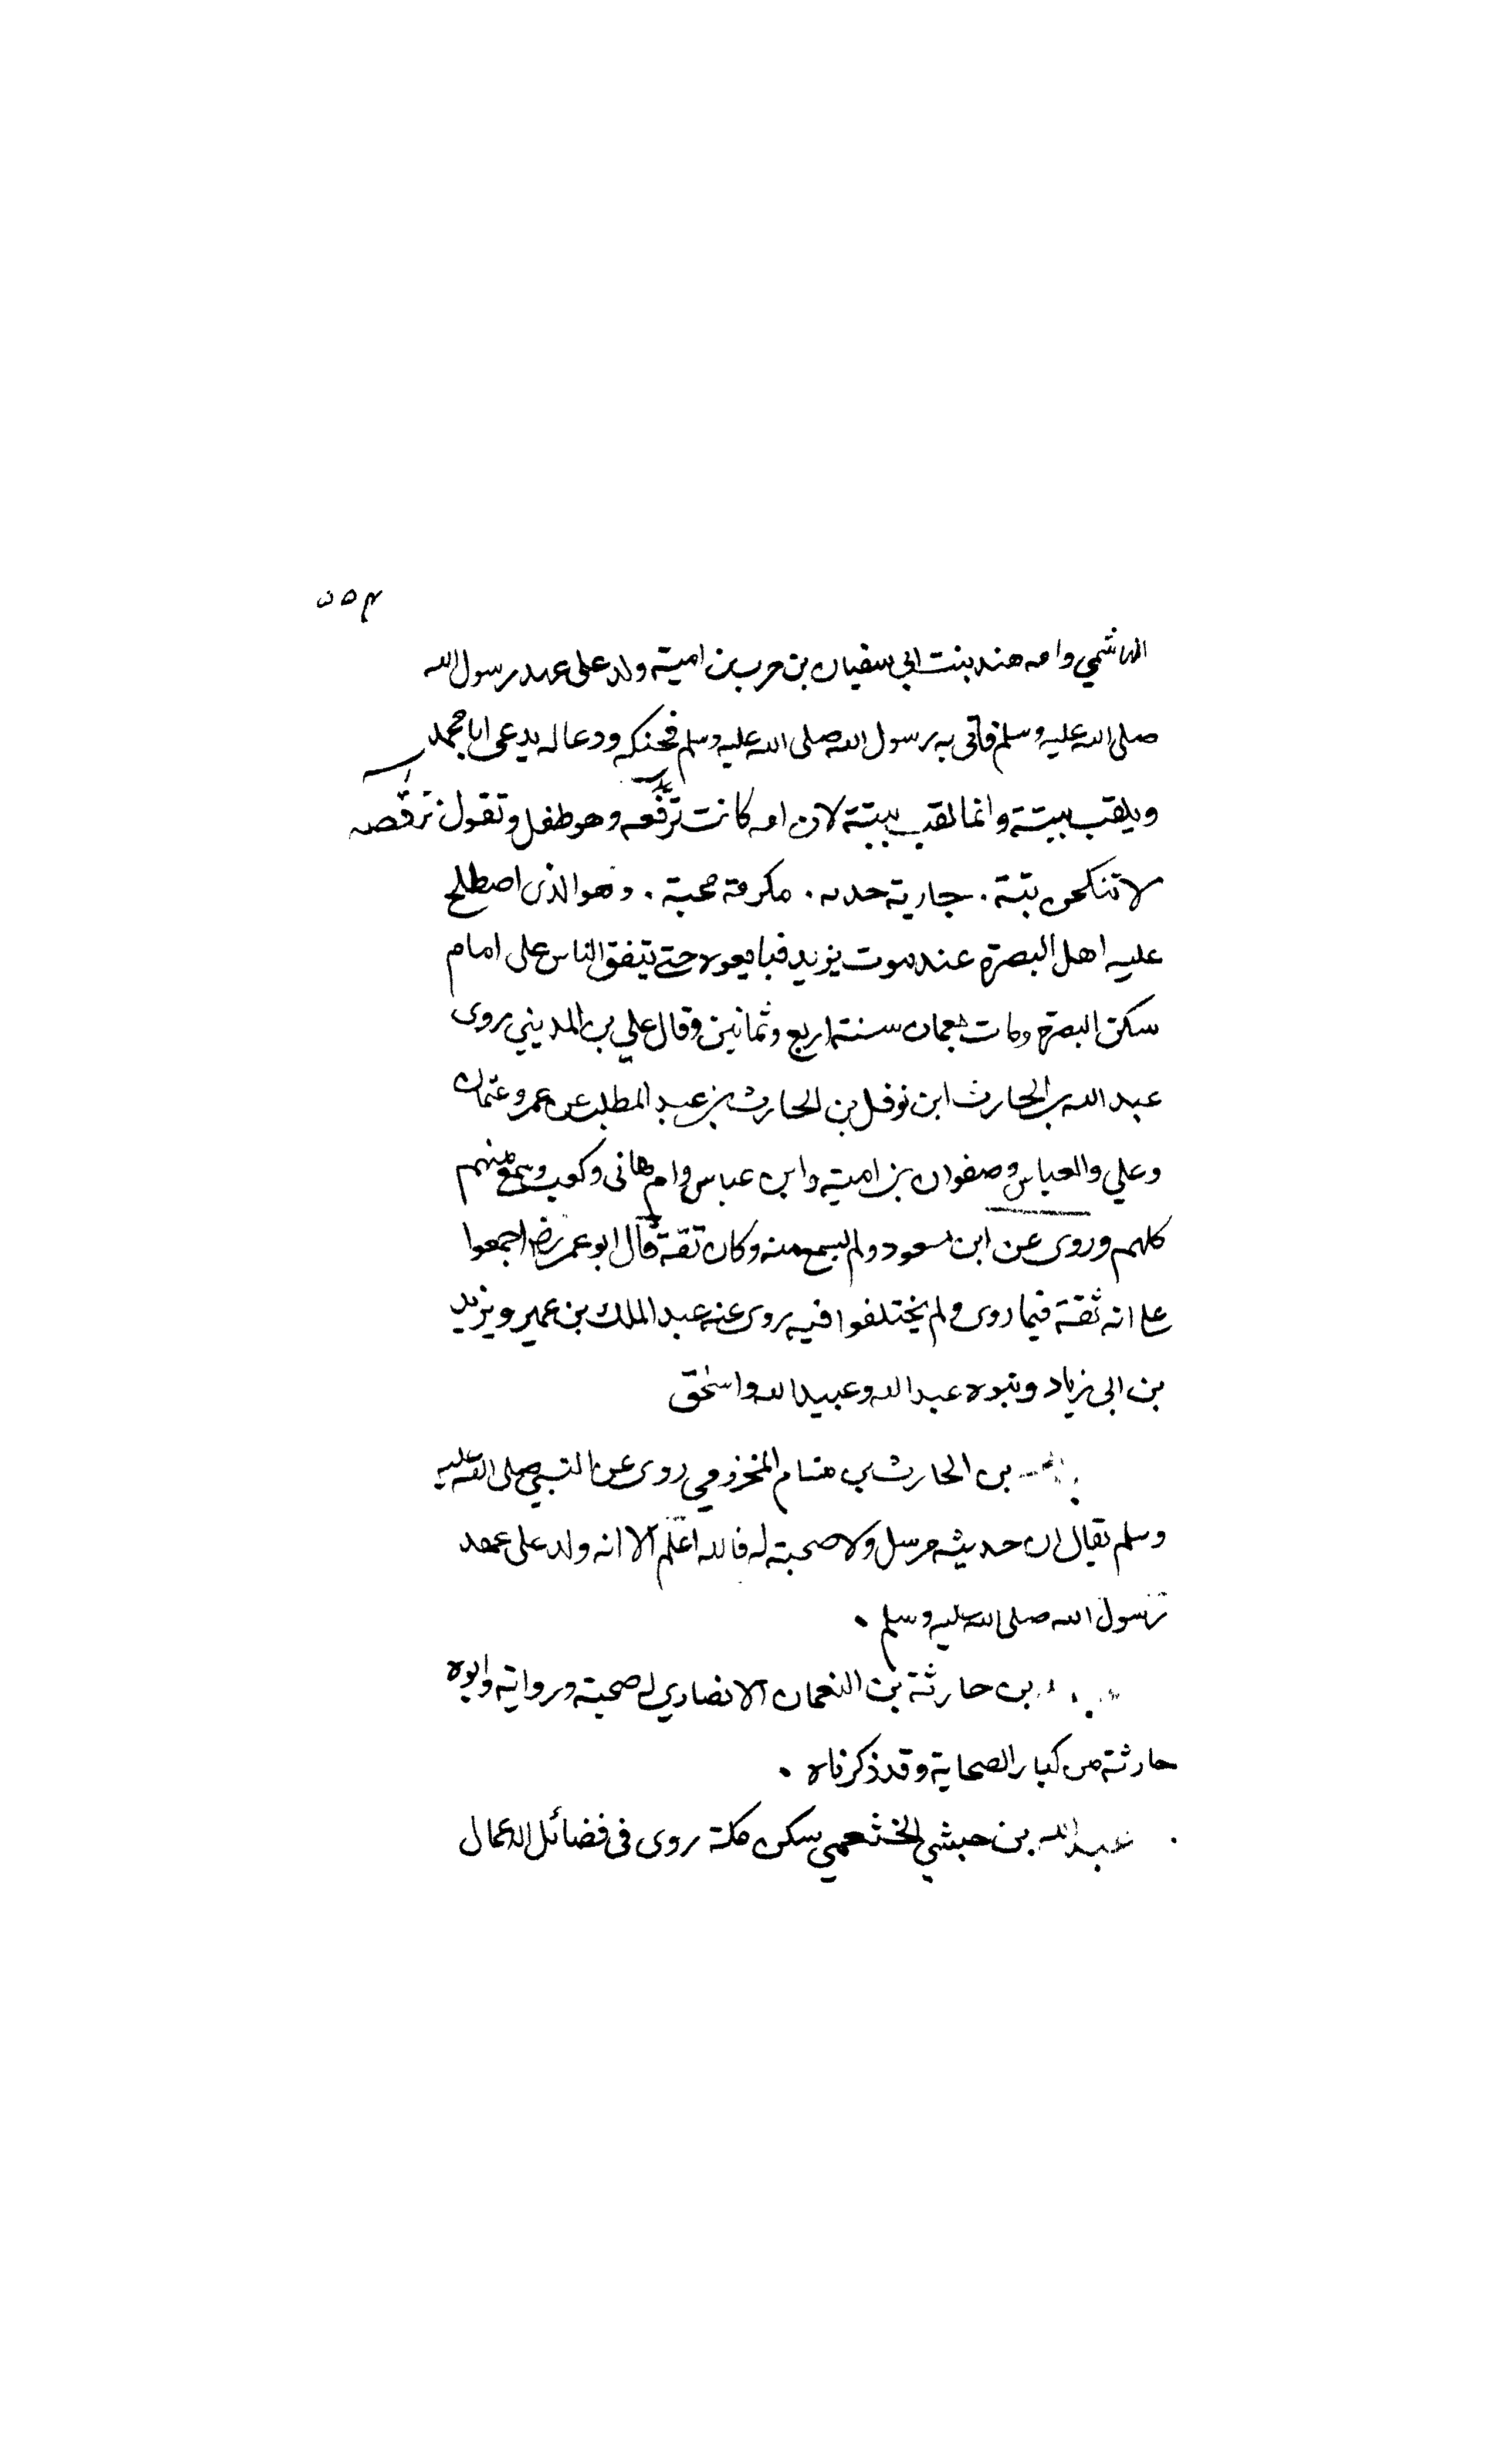 الهاشمي وامه هند بنت ابي سفيان بن حرب بن امية ولد على عهد رسول الله
صلى الله عليه وسلم فاتى به رسول الله صلى الله عليه وسلم فحنكه ودعا له يدعى ابا محمد
ويلقب ببتة وانما لقب ببتة لان امه كانت وهو طفل وتقول ترقصه
لا تنكحن بتة . جارية حدبه . مكرمة محبة . وهو الذى اصطلح
عليه اهل البصرة عند موت يزيد فبايعوه حتى يتفق الناس على امام
سكن البصرة ومات بعمان سنة اربع وثمانين وقال علي بن المديني روى
عبد الله بن الحارث ابن نوفل بن الحارث بن عبد المطلب عن عمر وعثمان
وعلي والعباس وصفوان بن امية وابن عباس وام هانى وكعب وسمع منهم
كلهم وروى عن ابن مسعود ولم يسمع منه وكان ثقة قال ابو عمر رضه اجمعوا
على انه ثقة فيما روى ولم يختلفوا فيه روى عنه عبد الملك بن عمير ويزيد
بن ابى زياد وبنوه عبد الله وعبيد الله واسحق
بن الحارث بن هشام المخزومي روى عن النبي صلى الله عليه
وسلم يقال ان حديثه مرسل ولا صحبة له فالله اعلم الا انه ولد على عهد
رسول الله صلى الله عليه وسلم .
بن حارثة بن النعمان الانصاري له صحبة ورواية وابوه
حارثة من كبار الصحابة وقد ذكرناه .
عبد الله بن حبشي الخثعمي سكن مكة روى فى فضائل الاعمال